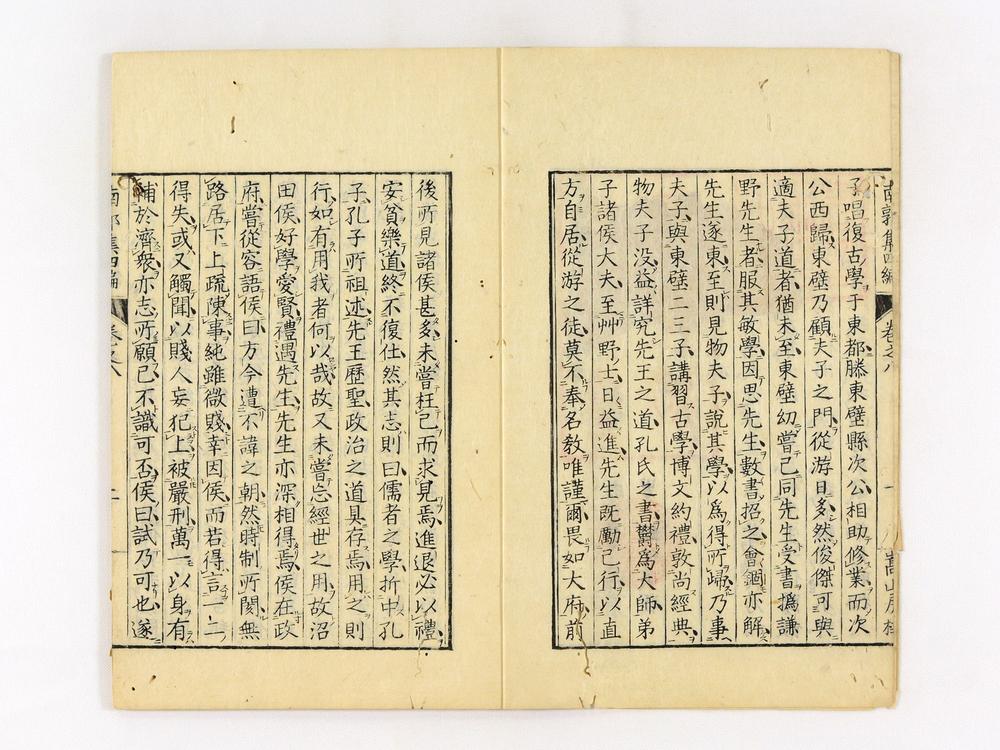 南郭集四編 卷之八 嵩山房梓
子唱復古學于東都滕東壁縣次公相助修業而次
公西歸東壁乃顧夫子之門從游日多然俊傑可與
適夫子道者猶未至東壁幼嘗已同先生受書撝謙
野先生者服其敏學因思先生數書招之會錮亦解
先生遂東至則見物夫子說其學以爲得所歸乃事
夫子與東壁二三子講習古學博文約禮敦尚經典
物夫子沒益詳究先王之道孔氏之書欝爲大師弟
子諸侯大夫至艸野士日益進先生既勵己行以直
方自居從游之徒莫不奉名教唯謹爾畏如大府前
後所見諸侯甚多未嘗枉己而求見焉進退必以禮
安貧樂道終不復仕然其志則曰儒者之學折中孔
子孔子所祖述先王歷聖政治之道具存焉用之則
行如有用我者何以哉故又未嘗忘經世之用故沼
田侯好學愛賢禮遇先生先生亦深相得焉侯在政
府嘗從容語侯曰方今遭不諱之朝然時制所闋無
路居下上疏陳事純雖微賤幸因侯而若得言一二
得失或又觸聞以賤人妄犯上被嚴刑萬一以身有
補於濟衆亦志所願已不識可否侯曰試乃可也遂
南郭集四編 卷之八